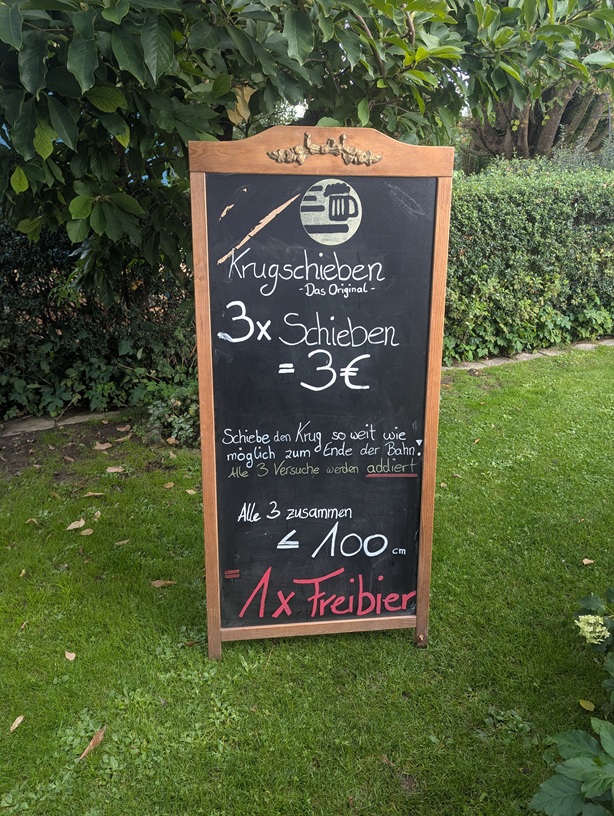 Krugschieben
- Das Original -
3x Schieben
= 3€
Schiebe den Krug so weit wie
möglich zum Ende der Bahn!
Alle 3 Versuche werden addiert
Alle 3 zusammen
≤ 100 cm
= 1x Freibier